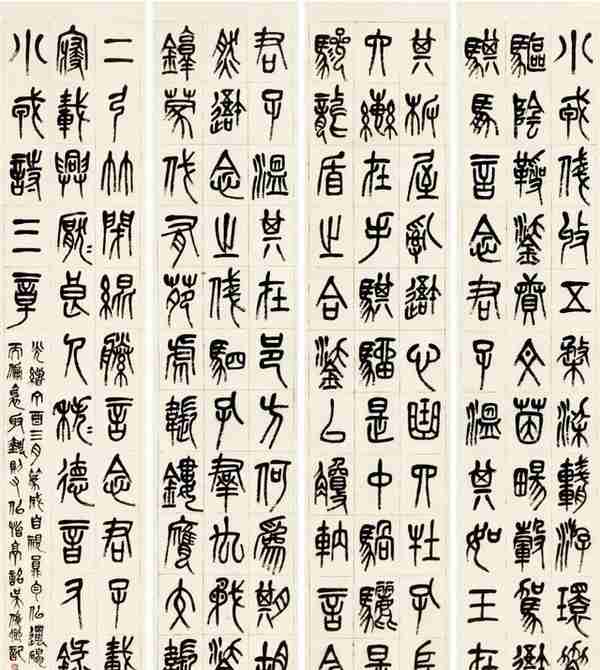 小戎俴收五楘梁輈游環脅
驅陰靷鋈續文茵暢轂駕我
騏馵言念君子溫其如玉在
其板屋亂我心曲四牡孔阜
六轡在手騏騮是中騧驪是
驂龍盾之合鋈以觼軜言念
君子溫其在邑方何為期胡
然我念之俴駟孔群厹矛鋈
錞蒙伐有苑虎韔鏤膺交韔
二弓竹閉緄縢言念君子載
寢載興厭〻良人秩〻德音又錄
小戎詩三章
光緒丁酉三月篆成自視